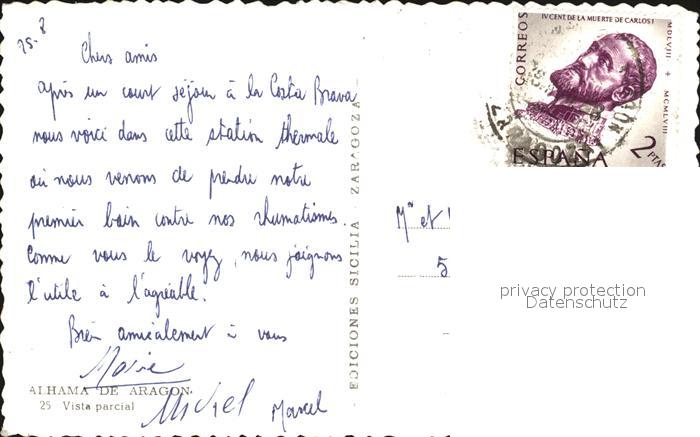 25-8
Chers amis
après un court séjour à la Costa Brava
nous voici dans cette station thermale
où nous venons de prendre notre
premier bain contre nos rhumatismes.
Comme vous le voyez, nous joignons
l'utile à l'agréable.
Bien amicalement à vous
Marie
Michel Marcel
ALHAMA DE ARAGON
25 Vista parcial
EDICIONES SICILIA - ZARAGOZA
CORREOS
IV CENT. DE LA MUERTE DE CARLOS I
MDLVIII + MCMLVIII
2 PTAS
ESPAÑA
Mr et
5
privacy protection
Datenschutz